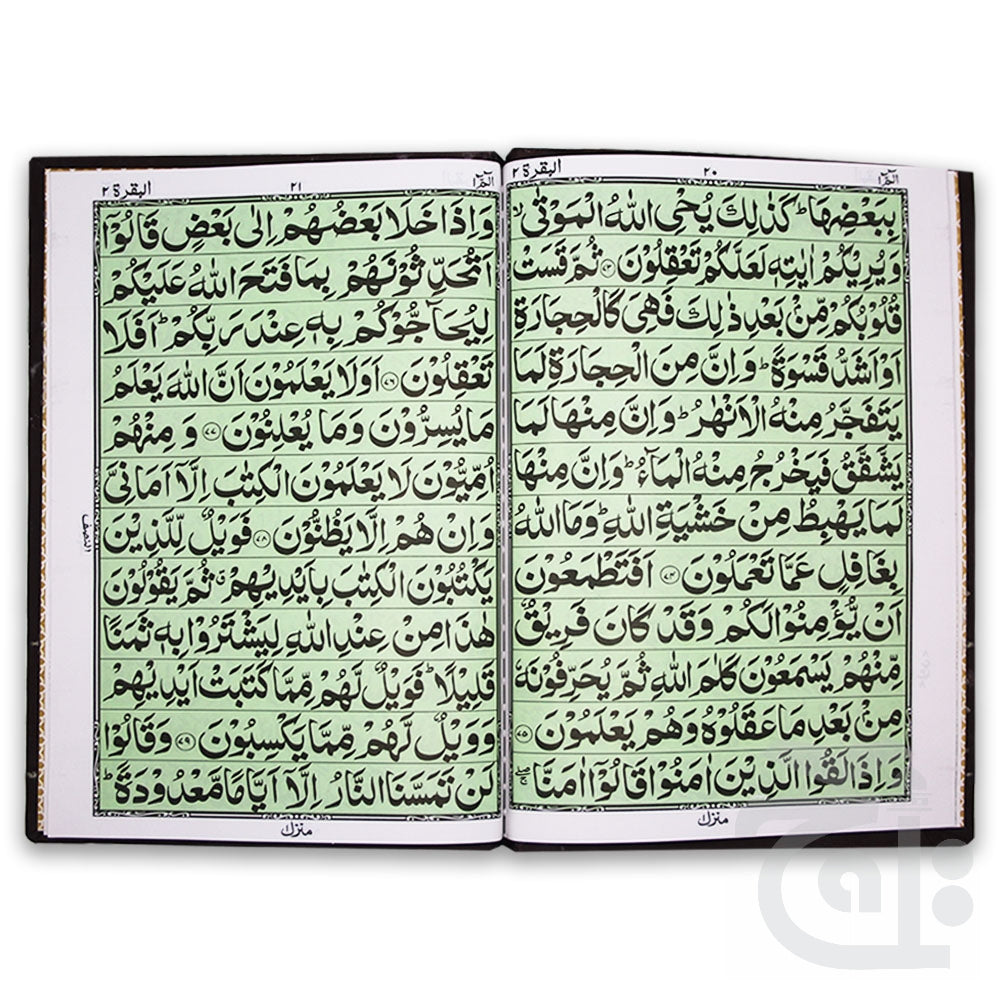 الٓمّٓ ١
٢٠
البقرة ٢
بِبَعْضِهَا ؕ كَذٰلِكَ يُحْيِ اللّٰهُ الْمَوْتٰى ۙ
وَ يُرِيْكُمْ اٰيٰتِهٖ لَعَلَّكُمْ تَعْقِلُوْنَ ﴿۷۳﴾ ثُمَّ قَسَتْ
قُلُوْبُكُمْ مِّنْۢ بَعْدِ ذٰلِكَ فَهِيَ كَالْحِجَارَةِ
اَوْ اَشَدُّ قَسْوَةً ؕ وَ اِنَّ مِنَ الْحِجَارَةِ لَمَا
يَتَفَجَّرُ مِنْهُ الْاَنْهٰرُ ؕ وَ اِنَّ مِنْهَا لَمَا
يَشَّقَّقُ فَيَخْرُجُ مِنْهُ الْمَآءُ ؕ وَ اِنَّ مِنْهَا
لَمَا يَهْبِطُ مِنْ خَشْيَةِ اللّٰهِ ؕ وَ مَا اللّٰهُ
بِغَافِلٍ عَمَّا تَعْمَلُوْنَ ﴿۷۴﴾ اَفَتَطْمَعُوْنَ
اَنْ يُّؤْمِنُوْا لَكُمْ وَ قَدْ كَانَ فَرِيْقٌ
مِّنْهُمْ يَسْمَعُوْنَ كَلٰمَ اللّٰهِ ثُمَّ يُحَرِّفُوْنَهٗ
مِنْۢ بَعْدِ مَا عَقَلُوْهُ وَ هُمْ يَعْلَمُوْنَ ﴿۷۵﴾
وَ اِذَا لَقُوا الَّذِيْنَ اٰمَنُوْا قَالُوْۤا اٰمَنَّا ۖۚ
منزل
٢١
البقرة ٢
وَ اِذَا خَلَا بَعْضُهُمْ اِلٰى بَعْضٍ قَالُوْۤا
اَتُحَدِّثُوْنَهُمْ بِمَا فَتَحَ اللّٰهُ عَلَيْكُمْ
لِيُحَآجُّوْكُمْ بِهٖ عِنْدَ رَبِّكُمْ ؕ اَفَلَا
تَعْقِلُوْنَ ﴿۷۶﴾ اَوَ لَا يَعْلَمُوْنَ اَنَّ اللّٰهَ يَعْلَمُ
مَا يُسِرُّوْنَ وَ مَا يُعْلِنُوْنَ ﴿۷۷﴾ وَ مِنْهُمْ
اُمِّيُّوْنَ لَا يَعْلَمُوْنَ الْكِتٰبَ اِلَّاۤ اَمَانِيَّ
وَ اِنْ هُمْ اِلَّا يَظُنُّوْنَ ﴿۷۸﴾ فَوَيْلٌ لِّلَّذِيْنَ
يَكْتُبُوْنَ الْكِتٰبَ بِاَيْدِيْهِمْ ۗ ثُمَّ يَقُوْلُوْنَ
هٰذَا مِنْ عِنْدِ اللّٰهِ لِيَشْتَرُوْا بِهٖ ثَمَنًا
قَلِيْلًا ؕ فَوَيْلٌ لَّهُمْ مِّمَّا كَتَبَتْ اَيْدِيْهِمْ
وَ وَيْلٌ لَّهُمْ مِّمَّا يَكْسِبُوْنَ ﴿۷۹﴾ وَ قَالُوْا
لَنْ تَمَسَّنَا النَّارُ اِلَّاۤ اَيَّامًا مَّعْدُوْدَةً ؕ
النصف
منزل